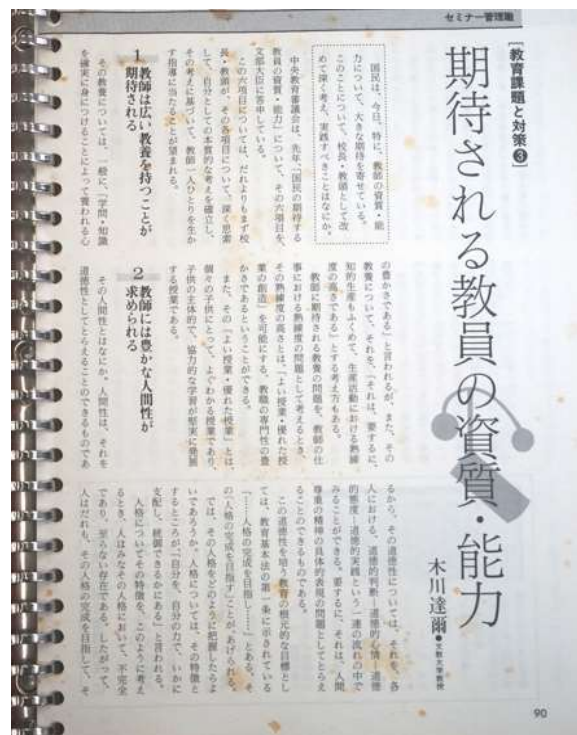 セミナー管理職
[教育課題と対策❸]
期待される教員の資質・能力
木川達爾●文教大学教授
国民は、今日、特に、教師の資質・能
力について、大きな期待を寄せている。
このことについて、校長・教頭として改
めて深く考え、実践すべきことはなにか。
中央教育審議会は、先年、「国民の期待する
教員の資質・能力」について、その六項目を、
文部大臣に答申している。
この六項目については、だれよりもまず校
長・教頭が、その各項目について、深く思索
して、自分としての本質的な考えを確立し、
その考えに基づいて、教師一人ひとりを生か
す指導に当たることが望まれる。
1 教師は広い教養を持つことが
期待される
その教養については、一般に、「学問・知識
を確実に身につけることによって養われる心
の豊かさである」と言われるが、また、その
教養について、それを、「それは、要するに、
知的生産もふくめて、生産活動における熟練
度の高さである」とする考え方もある。
教師に期待される教養の問題を、教師の仕
事における熟練度の問題として考えるとき、
その熟練度の高さとは、「よい授業・優れた授
業の創造」を可能にする、教職の専門性の豊
かさであるということができる。
また、その「よい授業・優れた授業」とは、
個々の子供にとって、よくわかる授業であり、
子供の主体的で、協力的な学習が堅実に発展
する授業である。
2 教師には豊かな人間性が
求められる
その人間性とはなにか。人間性は、それを
道徳性としてとらえることのできるものであ
るから、その道徳性については、それを、各
人における、道徳的判断―道徳的心情―道徳
的態度―道徳的実践という一連の流れの中で
みることができる。要するに、それは、人間
尊重の精神の具体的表現の問題としてとらえ
ることのできるものである。
この道徳性を培う教育の根元的な目標とし
ては、教育基本法の第一条に示されている
「……人格の完成を目指し……」とある、そ
の「人格の完成を目指す」ことがあげられる。
では、その人格をどのように把握したらよ
いであろうか。人格については、その特徴と
するところが、「自分を、自分の力で、いかに
支配し、統御できるかにある」と言われる。
人格についてその特徴を、このように考え
るとき、人はみなその人格において、不完全
であり、至らない存在である。したがって、
人はだれも、その人格の完成を目指して、そ
90